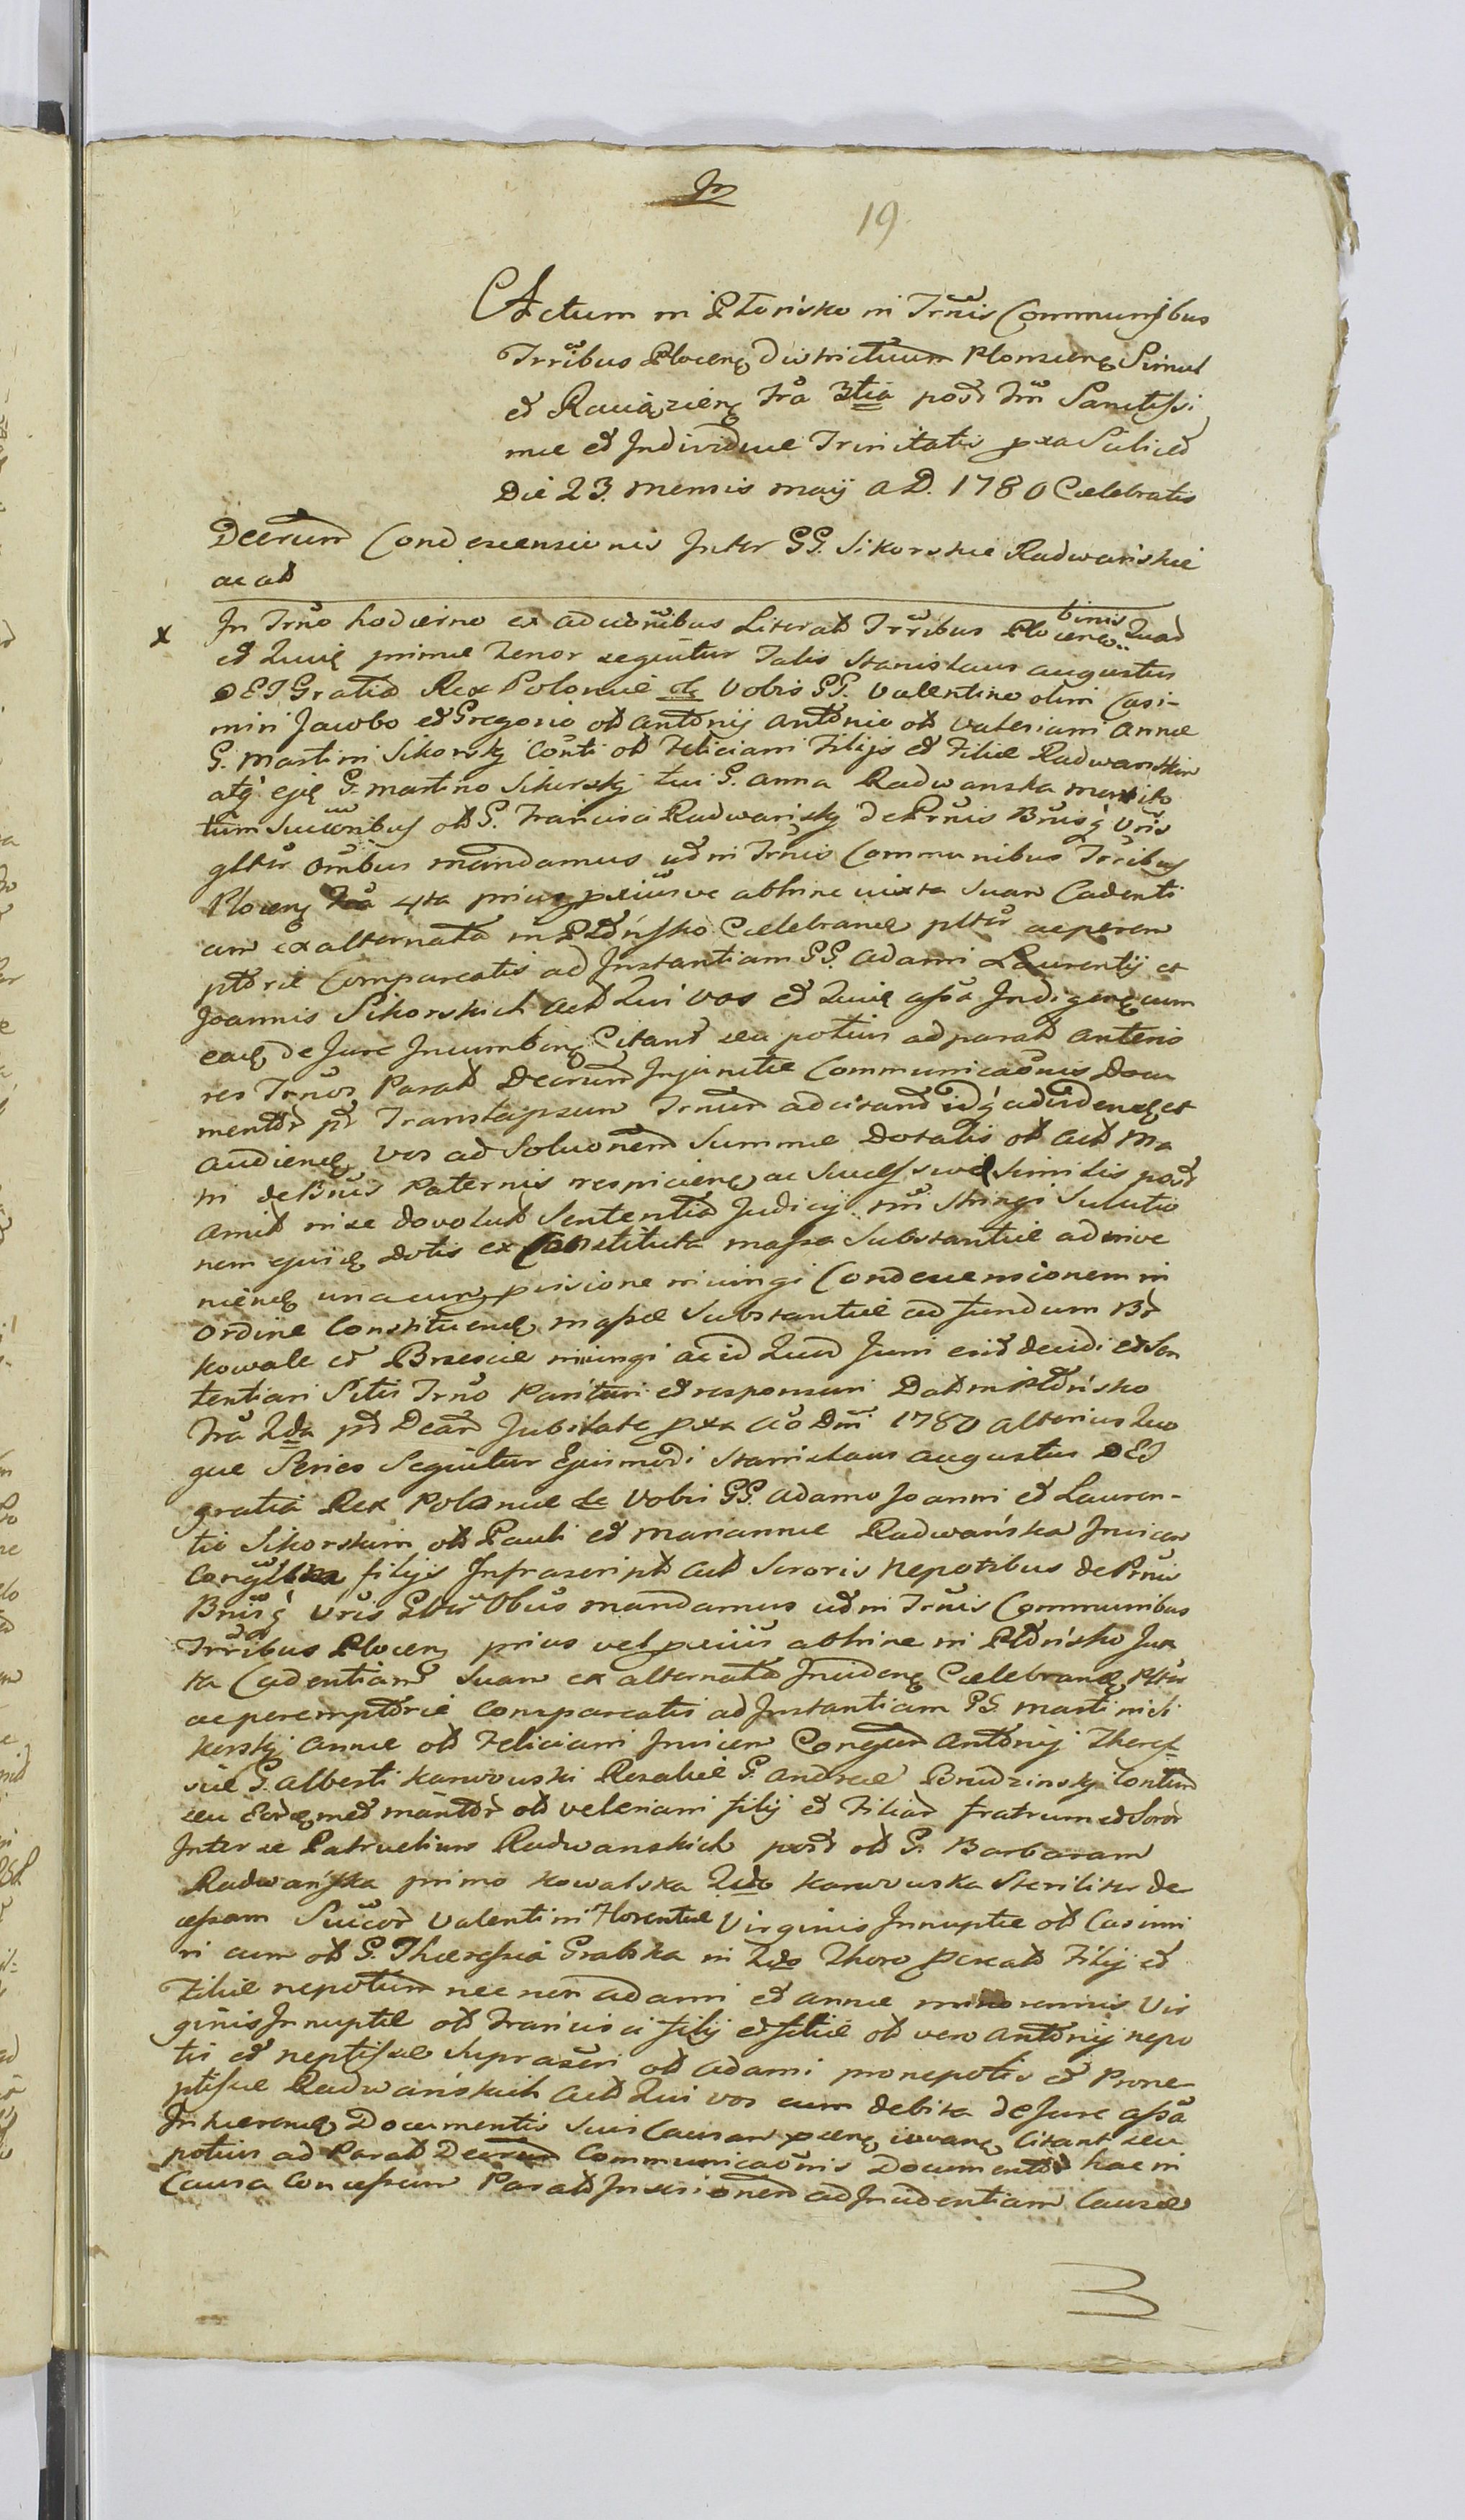 19
Actum in Płońsko in Trnis Communibus
Trribus Plocen Districtuum Plonscien Simul
et Raciążien Fra 3tia post Fm Sanctissi
mae et Individuae Trinitatis pxa Scilicet
Die 23. Mensis maij A D. 1780 Caelebratis
Decrum Condescensionis Inter GG. Sikorskie Radwańskie
ac at
x In Trno hodierno ex adcitonibus Literat Trribus Plocen binis Quar
et Quius primae Tenor sequitur Talis Stanislaus augustus
DEI Gratia Rex Poloniae etc Vobis GG. Valentino olim Casi-
miri Jacobo et Gregorio olt Antonij Antonio olt Valeriani Annae
G. Martini Sikorskj Conti olt Feliciani Filijs et Filiae Radwanskim
atq ejus G. Martino Sikorskj tui G. Anna Radwanska Marito
tum Succoribus olt G. Francisci Radwanskj de Prnis Bnisq Vris
gltr Omibus mandamus ut in Trnis Communibus Trribus
Plocen Fra 4ta prius pxiusve abhinc iuxta Suam Cadenti
am ex alternata in Płońsko Caelebran pltr ac perem
ptorie Compareatis ad Instantiam GG. Adami Laurentij et
Joannis Sikorskich act Qui vos et Quius assa Indigen cum
eaq de Jure Incumben Citant seu potius ad parat anterio
res Trnos Parat Decrum Injunctae Communicaonis Docu
mentor pr Translapsum Trnum adcitant idq advidend et
audiend vos ad Soluonem Summae Dotalis olt act Ma
ni de Bnis Paternis respicien ac Successive Similis post
amit in se Devolut Sententia Judicij nri Stringi Solutio
nem ejus dotis ex Constituta massa Substantiae adinve
niend unacum pvisione injungi Condescensionem in
Ordine Constituend massae Substantiae ad fundum Br
Kowale et Brzescie injungi ac id Quod Juri erit decidi et Sen
tentiari Sitis Trno Parituri et responsuri Dat in Płońsko
Fra 2da pt Dcam Jubilate pxa Ao Dni 1780 alterius Quo
que Series Sequitur Ejusmodi Stanislaus augustus DEI
gratia Rex Poloniae etc Vobis GG. Adamo Joanni et Lauren-
tio Sikorskim olt Pauli et Mariannae Radwańska Invicem
filijs Infrascript act Sororis Nepotibus de Prnis
Bnisq Vris Gltr Obus mandamus ut in Trnis Communibus
Trribus Plocen prius vel pxius abhinc in Płońsko Jux
ta Cadentiam Suam ex alternata Inciden Caelebran Pltr
ac peremptorie Compareatis ad Instantiam GG. Martini Si
korskj Annae olt Feliciani Invicem Congum Antonij Theres
siae G. Alberti Karwowski Rosaliae G. Andreae Brudzinskj Contum
seu Eorumet Maritor olt Valeriani filij et Filiar fratrum et Soror
Inter se Patruelium Radwanskich post olt G. Barbaram
Radwańska primo Kowalska 2do Karwowska Steriliter de
cessam Succor Valentini Florentiae Virginis Innuptae olt Casimi
ri cum olt G. Theressia Grabska in 2do Thoro pcreat Filij et
Filiae nepotum nec non Adami et Annae minorennis Vir
ginis Innuptae olt Francisci filij et filiae olt vero Antonij nepo
tis et neptisae Suprascri olt Adami pronepotis et Prone
ptisae Radwańskich act Qui vos cum debita de Jure assa
Inhaerend Documentis Suis Causam pcen iuvan Citant seu
potius ad Parat Decrum Communicaonis Documentor hac in
Causa Concessum Parat Inscrionem ad Incidentiam Causae